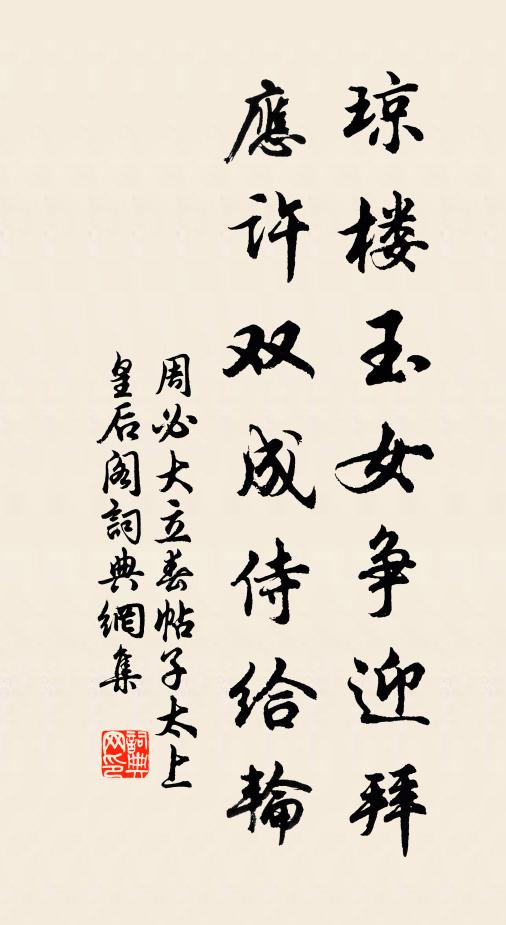 琼楼玉女争迎拜
應许双成侍给輪
周必大立春帖子太上
皇后阁詞典網集
詞典网印